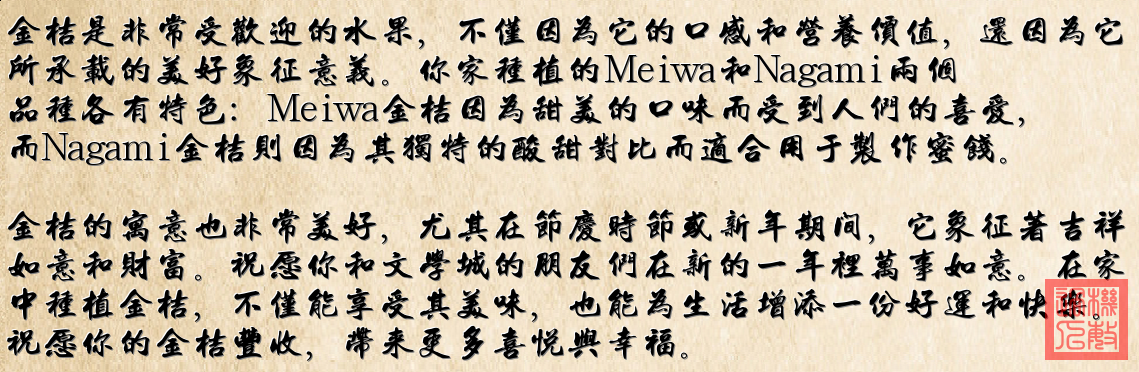 金桔是非常受歡迎的水果，不僅因為它的口感和營養價值，還因為它
所承載的美好象征意義。你家種植的Meiwa和Nagami兩個
品種各有特色：Meiwa金桔因為甜美的口味而受到人們的喜愛，
而Nagami金桔則因為其獨特的酸甜對比而適合用于製作蜜餞。
金桔的寓意也非常美好，尤其在節慶時節或新年期间，它象征著吉祥
如意和財富。祝愿你和文學城的朋友們在新的一年裡萬事如意。在家
中種植金桔，不僅能享受其美味，也能為生活增添一份好運和快樂。
祝愿你的金桔豐收，帶來更多喜悅與幸福。